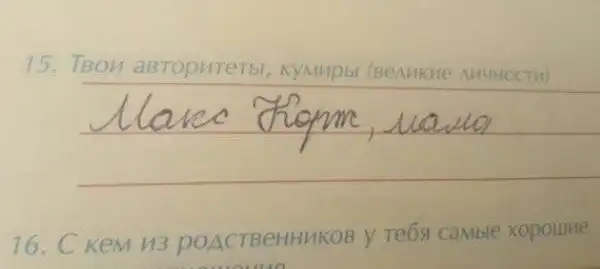 15. Твои авторитеты, кумиры (великие личности)
Макс Корж, мама
16. С кем из родственников у тебя самые хорошие